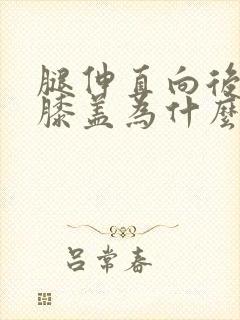 腿伸直向後
膝盖為什麼
吕常春